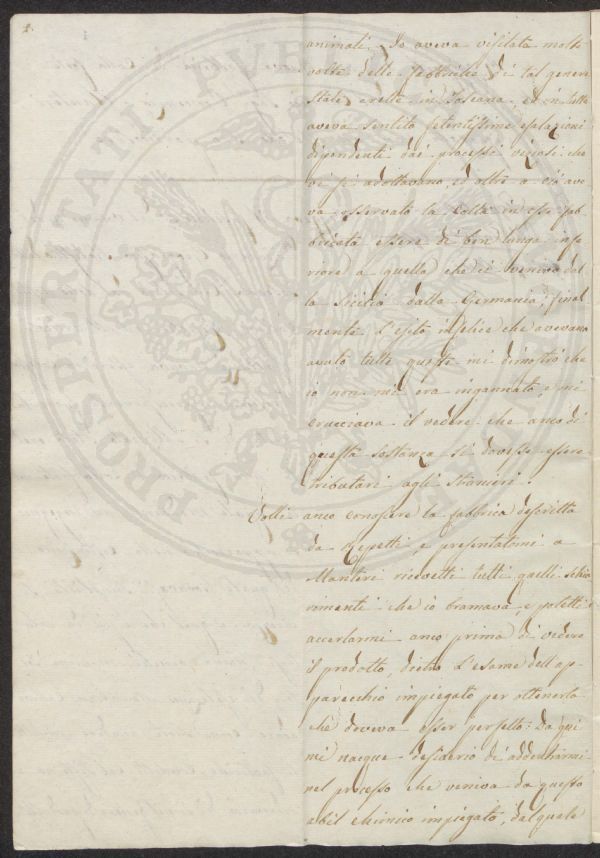 2.
animali. Io aveva visitata molte
volte delle fabbriche di tal genere
state erette in Toscana, ed in tutte
aveva sentito fetentissime esalazioni
dipendenti dai processi viziosi che
vi si adottavano, ed oltre a ciò ave-
va osservato la Colla in esse fab-
bricata essere di ben lunga infe-
riore a quella che ci veniva dal-
la Sicilia dalla Germania; final-
mente l'esito infelice che avevano
avuto tutte queste mi dimostrò che
io non mi era ingannato, e mi
crucciava il vedere che anco di
questa sostanza si dovesse essere
tributari agli stranieri.
Volli anco conoscere la fabbrica descritta
da Repetti, e presentatomi a
Manteri ricevetti tutti quelli schia-
rimenti che io bramava, e potetti
accertarmi anco prima di vedere
il prodotto, dietro l'esame dell'ap-
parecchio impiegato per ottenerlo
che doveva esser perfetto: Da qui
mi nacque desiderio di addentrarmi
nel processo che veniva da questo
abil chimico impiegato, dal quale
PROSPERITATI PUBLICAE